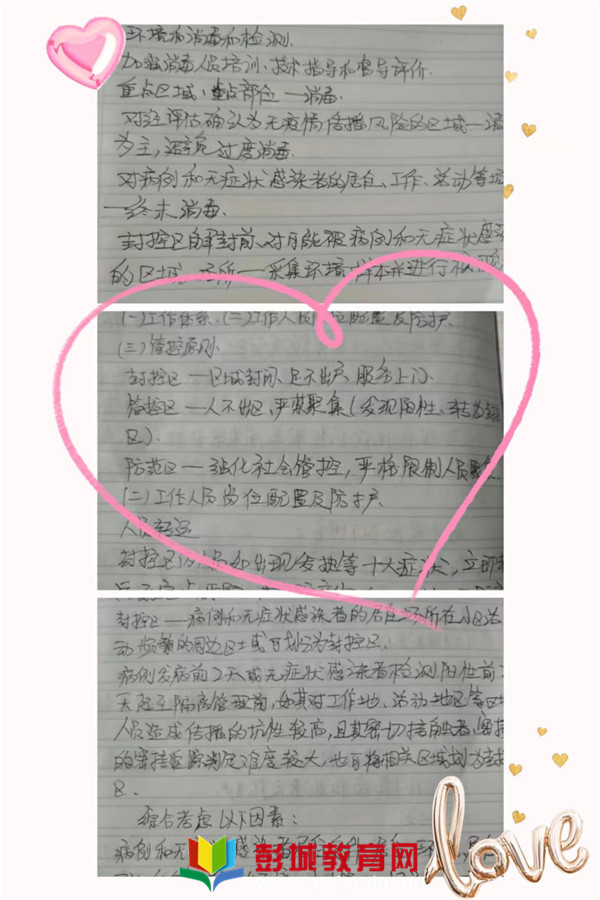 环境和消毒和检测.
加强消毒人员培训、技术指导和督导评价.
重点区域、重点部位一消毒.
对经评估确认为无疫情传播风险的区域一清
为主,避免过度消毒.
对病例和无症状感染者的居住、工作、活动等场
一终末消毒.
封控区解封前、对可能被病例和无症状感染
的区域、场所一采集环境样本并进行核
(一)工作体系、(二)工作人员岗位配置及防护.
(三)管控原则.
封控区一区域封闭、足不出户、服务上门.
管控区一人不出区、严禁聚集(发现阳性、转为封
区).
防范区一强化社会管控,严格限制人员聚
(二)工作人员岗位配置及防护.
人员转运
封控区人员如出现发热等十大症状,立即
封控区一病例和无症状感染者的居住场所在小区活
动频繁的周边区域可划分为封控区.
病例发病前2天或无症状感染者检测阳性前2
天起至隔离管理前,如其对工作地、活动地区等区
人员造成传播的 性较高,且其密切接触者、密接
的密接追踪判定难度较大,也可将相关区域划为封控
区.
综合考虑以下因素:
病例和无 感染者
彭城教育网
love